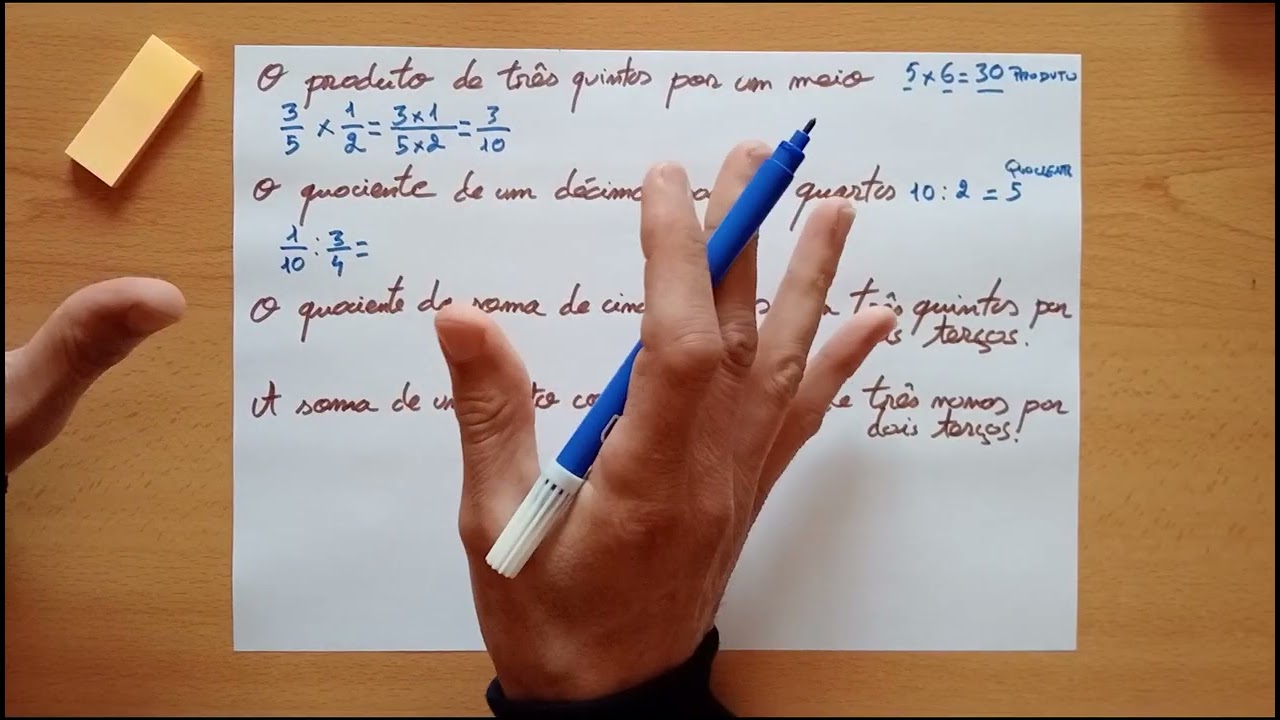 O produto de três quintos por um meio 5 × 6 = 30 PRODUTO
3/5 × 1/2 = 3×1/5×2 = 3/10
O quociente de um décimo quartos 10 : 2 = 5 QUOCIENTE
1/10 : 3/4 =
O quociente da soma de três quintos por
terços.
A soma de três nonos por
dois terços!